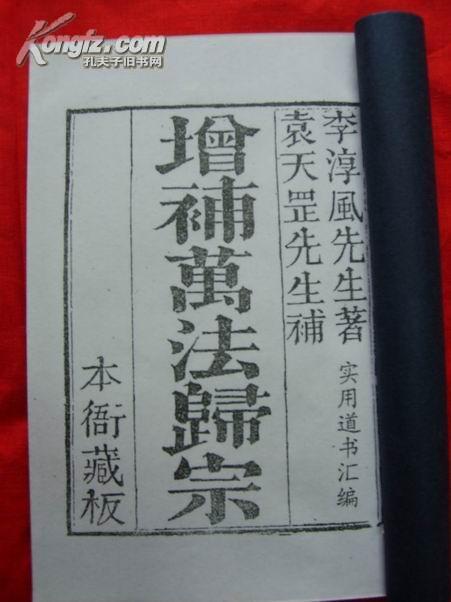 Kongfz.com
孔夫子旧书网
李淳風先生著
袁天罡先生補
实用道书汇编
增補萬法歸宗
本衙藏板